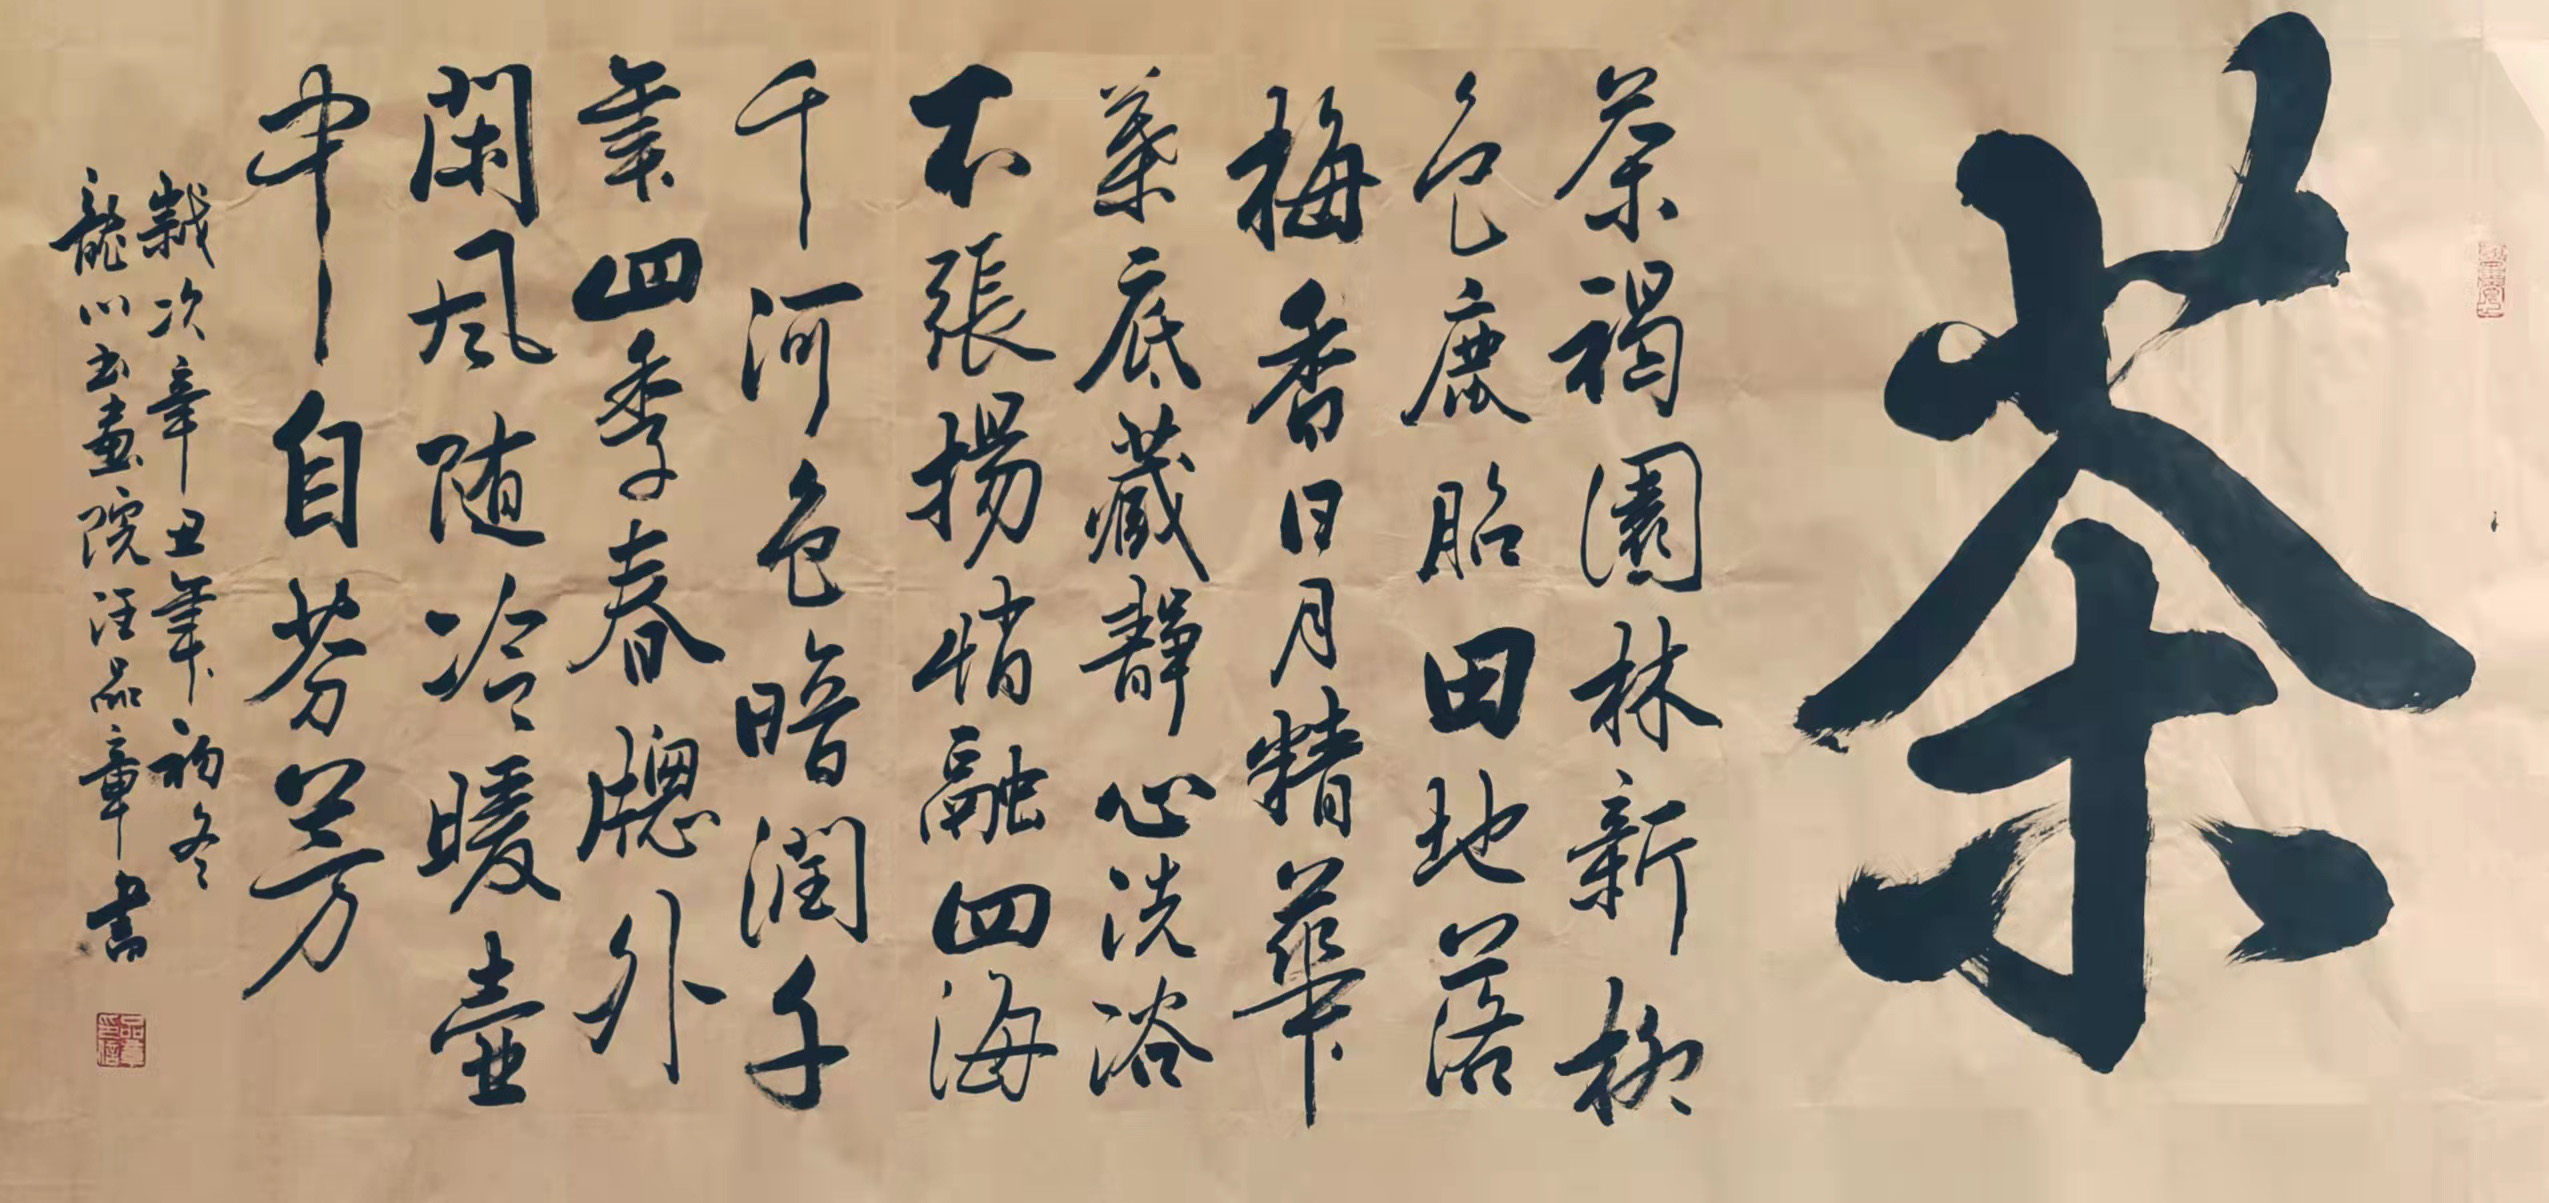 茶
茶褐園林新柳
色鹿胎田地落
梅香日月精華
葉底藏靜心洗浴
不張揚悄融四海
千河色暗潤千
年四季春牕外
闲風随冷暖壺
中自芬芳
歲次辛丑年初冬
龍川书畫院汪品章書
品章印信